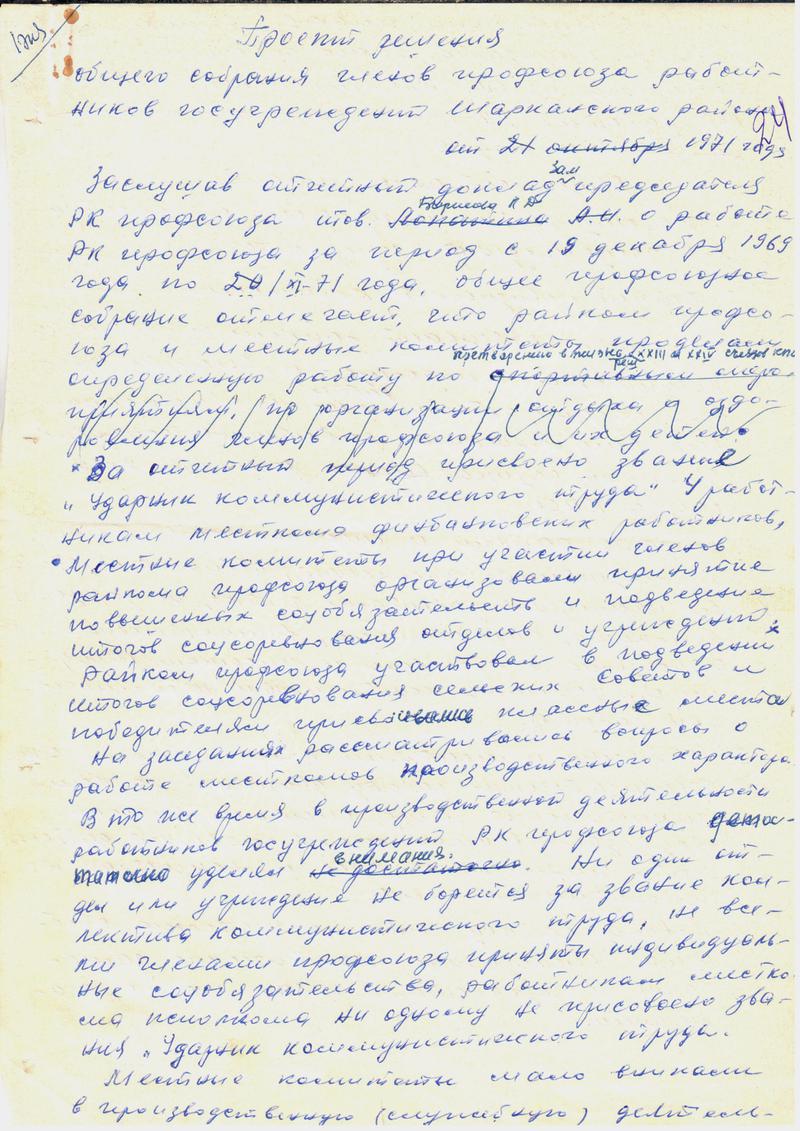 1 экз
Проект решения
общего собрания членов профсоюза работ-
ников госучреждений Шарканского района
24
от 21 октября 1971 года
Зам
Заслушав отчетный доклад председателя
РК профсоюза тов. А.И. о работе
РК профсоюза за период с 19 декабря 1969
года по XI-71 года, общее профсоюзное
собрание отмечает, что райком профсо-
юза и местные комитеты проделали
претворению в жизнь реш XXIII и XXIV съездов КПСС
определенную работу по спортивным меро-
приятиям, по организации отдыха и оздо-
ровления членов профсоюза и их детей.
За отчетный период присвоено звание
"Ударник коммунистического труда" 4 работ-
никам месткома финбанковских работников,
Местные комитеты при участии членов
райкома профсоюза организовали принятие
повышенных соцобязательств и подведение
итогов соцсоревнования отделов и учреждений.
Райком профсоюза участвовал в подведении
итогов соцсоревнования сельских Советов и
победителям классные места
На заседаниях рассматривались вопросы о
работе месткомов производственного характера.
В то же время в производственной деятельности
работников госучреждений РК профсоюза
внимания.
уделял недостаточно. Ни один от-
дел или учреждение не борется за звание кол-
лектива коммунистического труда, не все-
ми членами профсоюза приняты индивидуаль-
ные соцобязательства, работникам местко-
ма исполкома ни одному не присвоено зва-
ния "Ударник коммунистического труда.
Местные комитеты мало вникали
в производственную (служебную) деятель-